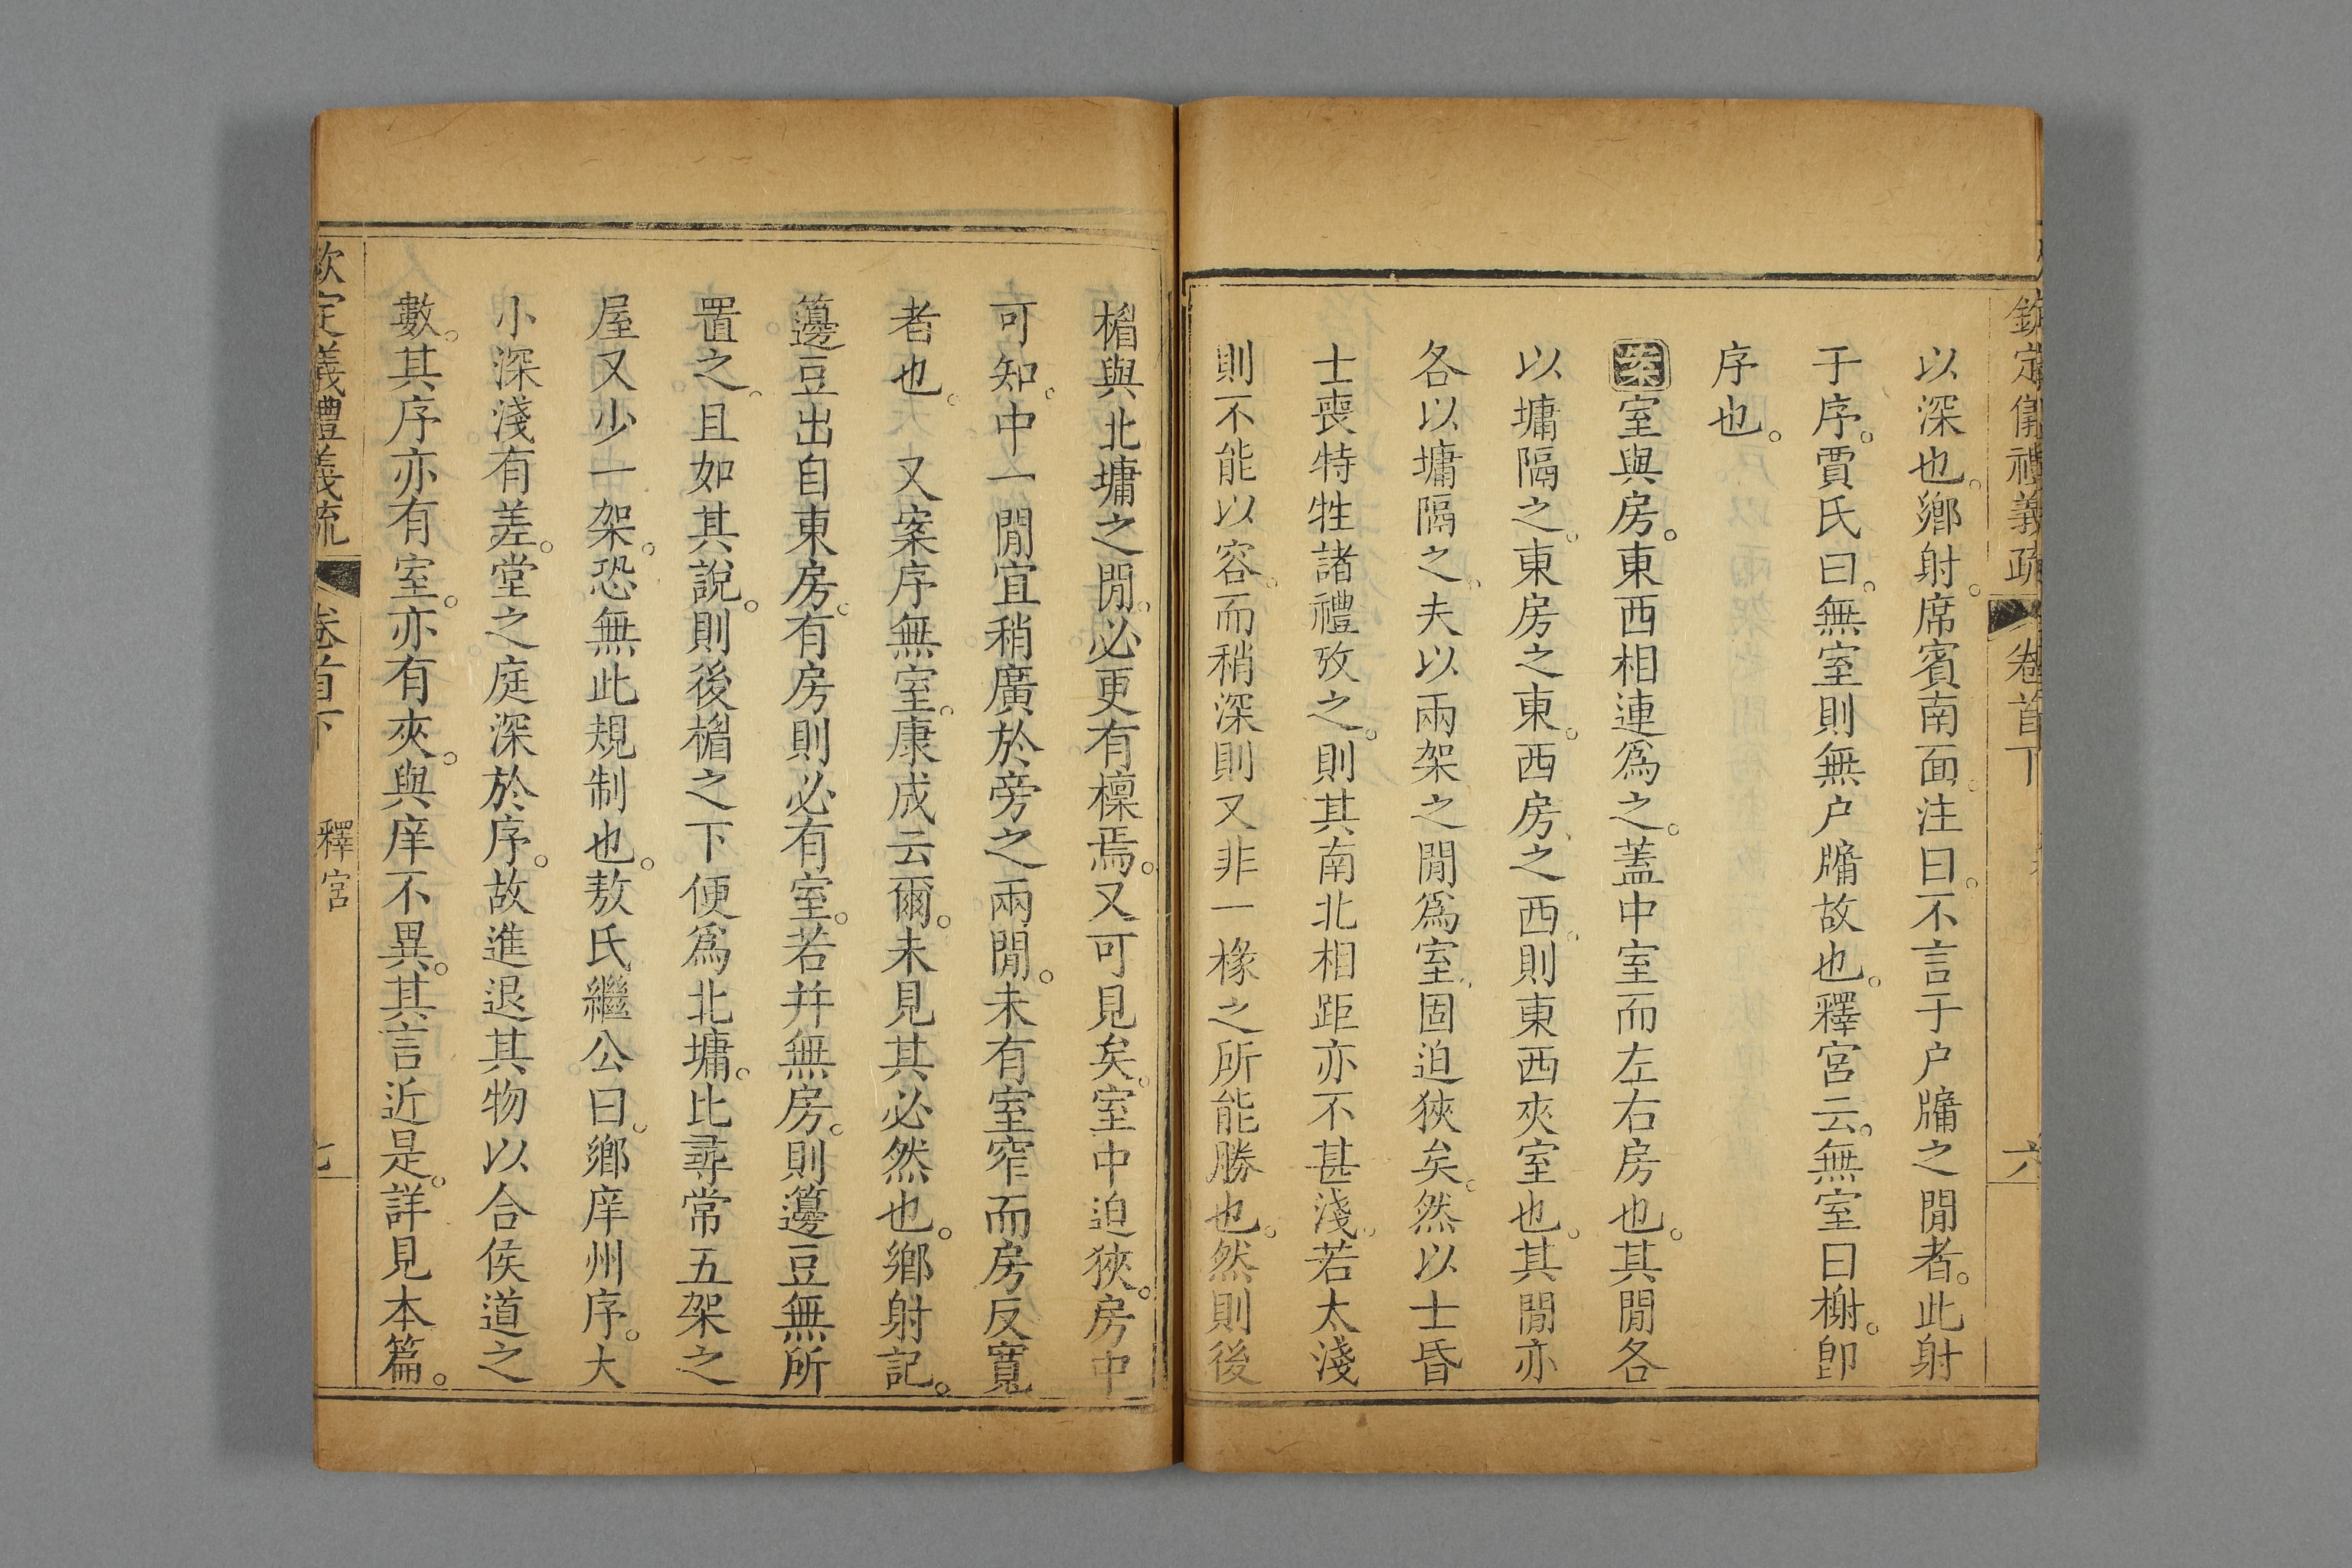 欽定儀禮義疏 卷首下 六
以深也。鄉射。席賓南面。注曰。不言于户牖之閒者。此射
于序。賈氏曰。無室則無户牖故也。釋宮云。無室曰榭。卽
序也。
案室與房。東西相連爲之。蓋中室而左右房也。其閒各
以墉隔之。東房之東。西房之西。則東西夾室也。其閒亦
各以墉隔之。夫以兩架之閒爲室。固迫狹矣。然以士昏
士喪特牲諸禮攷之。則其南北相距亦不甚淺。若太淺
則不能以容。而稍深則又非一椽之所能勝也。然則後
楣與北墉之閒。必更有檁焉。又可見矣。室中迫狹。房中
可知。中一閒宜稍廣於旁之兩閒。未有室窄而房反寬
者也。 又案序無室。康成云爾。未見其必然也。鄉射記。
籩豆出自東房。有房則必有室。若并無房。則籩豆無所
置之。且如其說。則後楣之下便爲北墉。比尋常五架之
屋又少一架。恐無此規制也。敖氏繼公曰。鄉庠州序。大
小深淺有差。堂之庭深於序。故進退其物以合侯道之
數。其序亦有室。亦有夾。與庠不異。其言近是。詳見本篇。
欽定義禮義疏 卷首下 釋宮 七